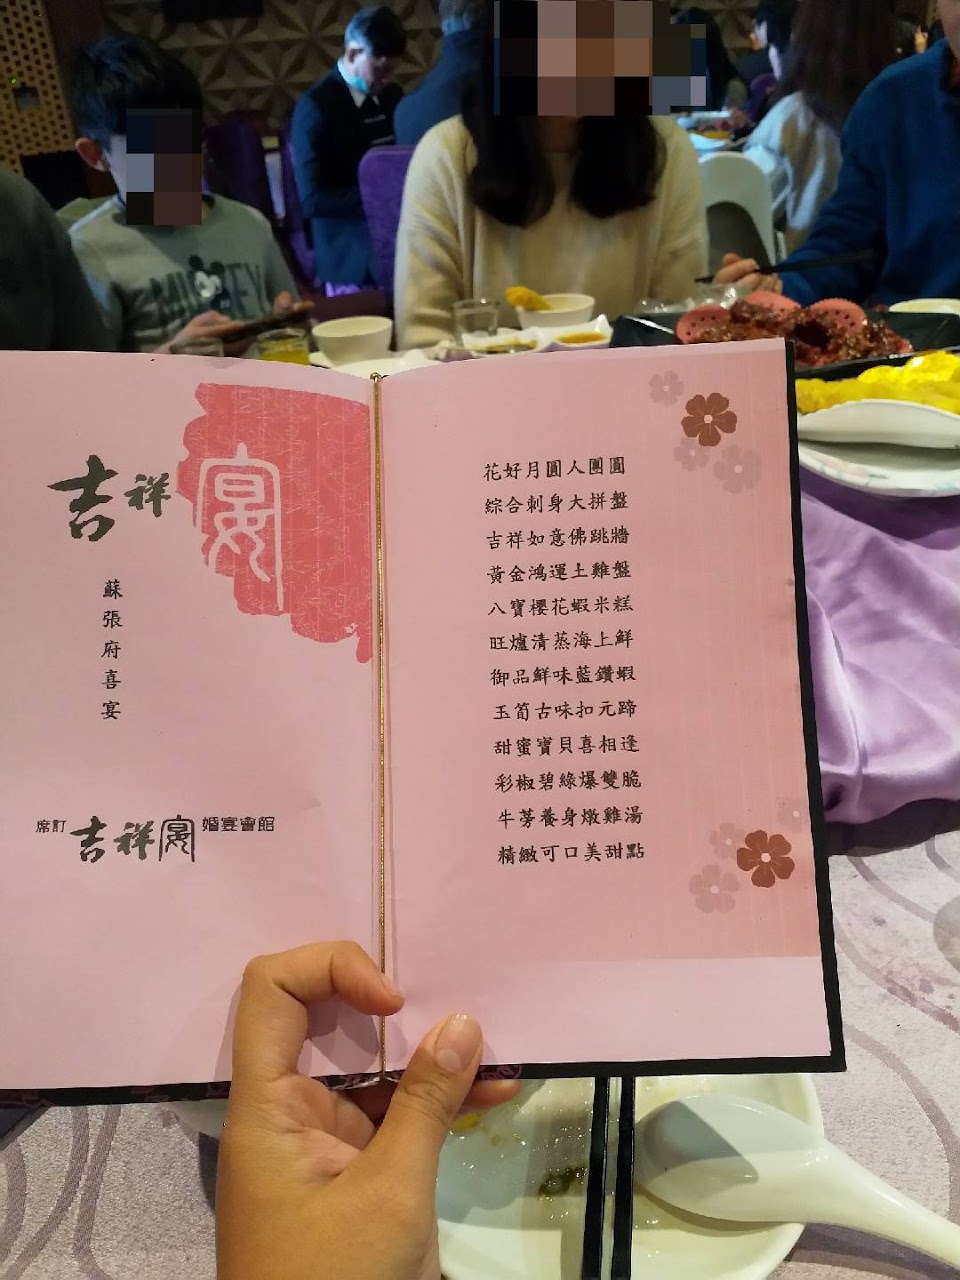 MICKEY
吉祥宴
蘇張府喜宴
席訂 吉祥宴 婚宴會館
花好月圓人團圓
綜合刺身大拼盤
吉祥如意佛跳牆
黃金鴻運土雞盤
八寶櫻花蝦米糕
旺爐清蒸海上鮮
御品鮮味藍鑽蝦
玉筍古味扣元蹄
甜蜜寶貝喜相逢
彩椒碧綠爆雙脆
牛蒡養身燉雞湯
精緻可口美甜點